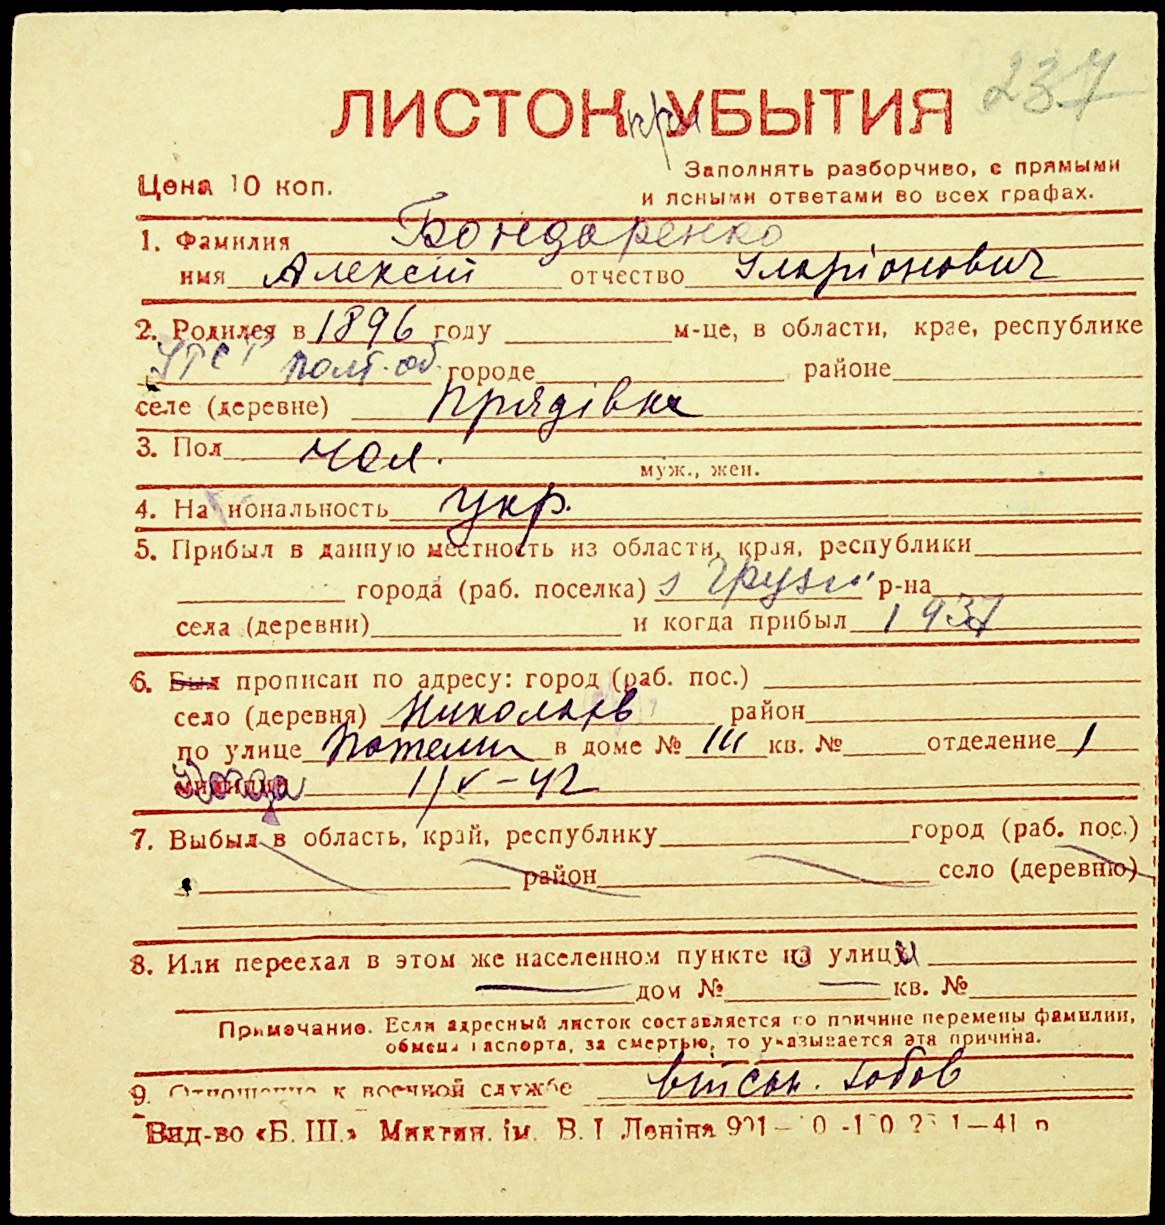 237
ЛИСТОК при УБЫТИЯ
Заполнять разборчиво, с прямыми
Цена 10 коп.
и ясными ответами во всех графах.
1. Фамилия Бондаренко
имя Алексій отчество Іларіонович
2. Родился в 1896 году м-це, в области, крае, республике
УРСР Полт. об. городе районе
селе (деревне) Прядівка
3. Пол чол.
муж., жен.
4. Национальность укр.
5. Прибыл в данную местность из области, края, республики
города (раб. поселка) з Грузії р-на
села (деревни) и когда прибыл 1937
6. Был прописан по адресу: город (раб. пос.)
село (деревня) Николаев район
по улице в доме № 111 кв. № отделение 1
милиции 1/V-42
7. Выбыл в область, край, республику город (раб. пос.)
район село (деревню)
8. Или переехал в этом же населенном пункте на улицу
дом № кв. №
Примечание. Если адресный листок составляется по причине перемены фамилии,
обмена паспорта, за смертью, то указывается эта причина.
9. Отношение к военной службе військ. зобов
Вид-во «Б. Ш.» Миктип. ім. В. І Леніна